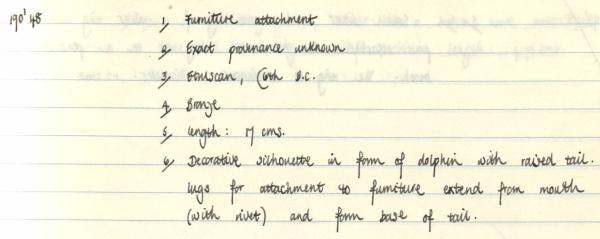 190'48 1, Furniture attachment
2, Exact provenance unknown
3, Etruscan, (6th B.C.
4, Bronze
5, length: 17 cms.
6, Decorative silhouette in form of dolphin with raised tail.
lugs for attachment to furniture extend from mouth
(with rivet) and form base of tail.